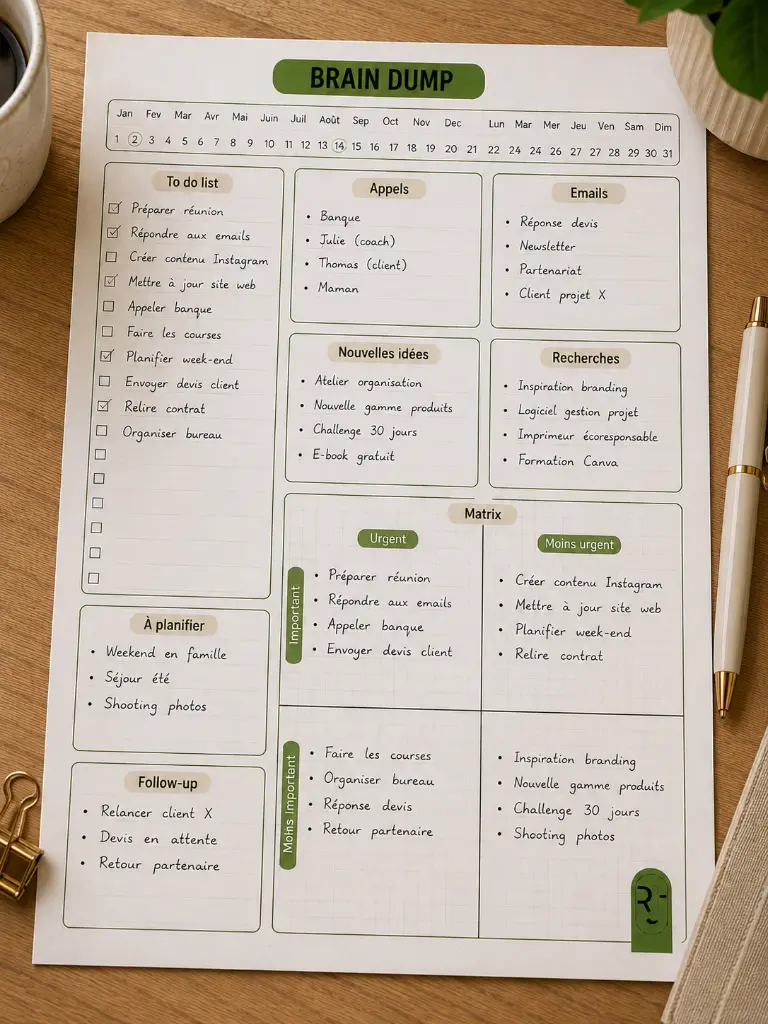 BRAIN DUMP
Jan Fev Mar Avr Mai Juin Juil Août Sep Oct Nov Dec Lun Mar Mer Jeu Ven Sam Dim
1 2 3 4 5 6 7 8 9 10 11 12 13 14 15 16 17 18 19 20 21 22 24 25 26 27 27 28 29 30 31
To do list
Préparer réunion
Répondre aux emails
Créer contenu Instagram
Mettre à jour site web
Appeler banque
Faire les courses
Planifier week-end
Envoyer devis client
Relire contrat
Organiser bureau
Appels
Banque
Julie (coach)
Thomas (client)
Maman
Emails
Réponse devis
Newsletter
Partenariat
Client projet X
Nouvelles idées
Atelier organisation
Nouvelle gamme produits
Challenge 30 jours
E-book gratuit
Recherches
Inspiration branding
Logiciel gestion projet
Imprimeur écoresponsable
Formation Canva
À planifier
Weekend en famille
Séjour été
Shooting photos
Follow-up
Relancer client X
Devis en attente
Retour partenaire
Matrix
Urgent
Moins urgent
Important
Préparer réunion
Répondre aux emails
Appeler banque
Envoyer devis client
Créer contenu Instagram
Mettre à jour site web
Planifier week-end
Relire contrat
Moins Important
Faire les courses
Organiser bureau
Réponse devis
Retour partenaire
Inspiration branding
Nouvelle gamme produits
Challenge 30 jours
Shooting photos
R